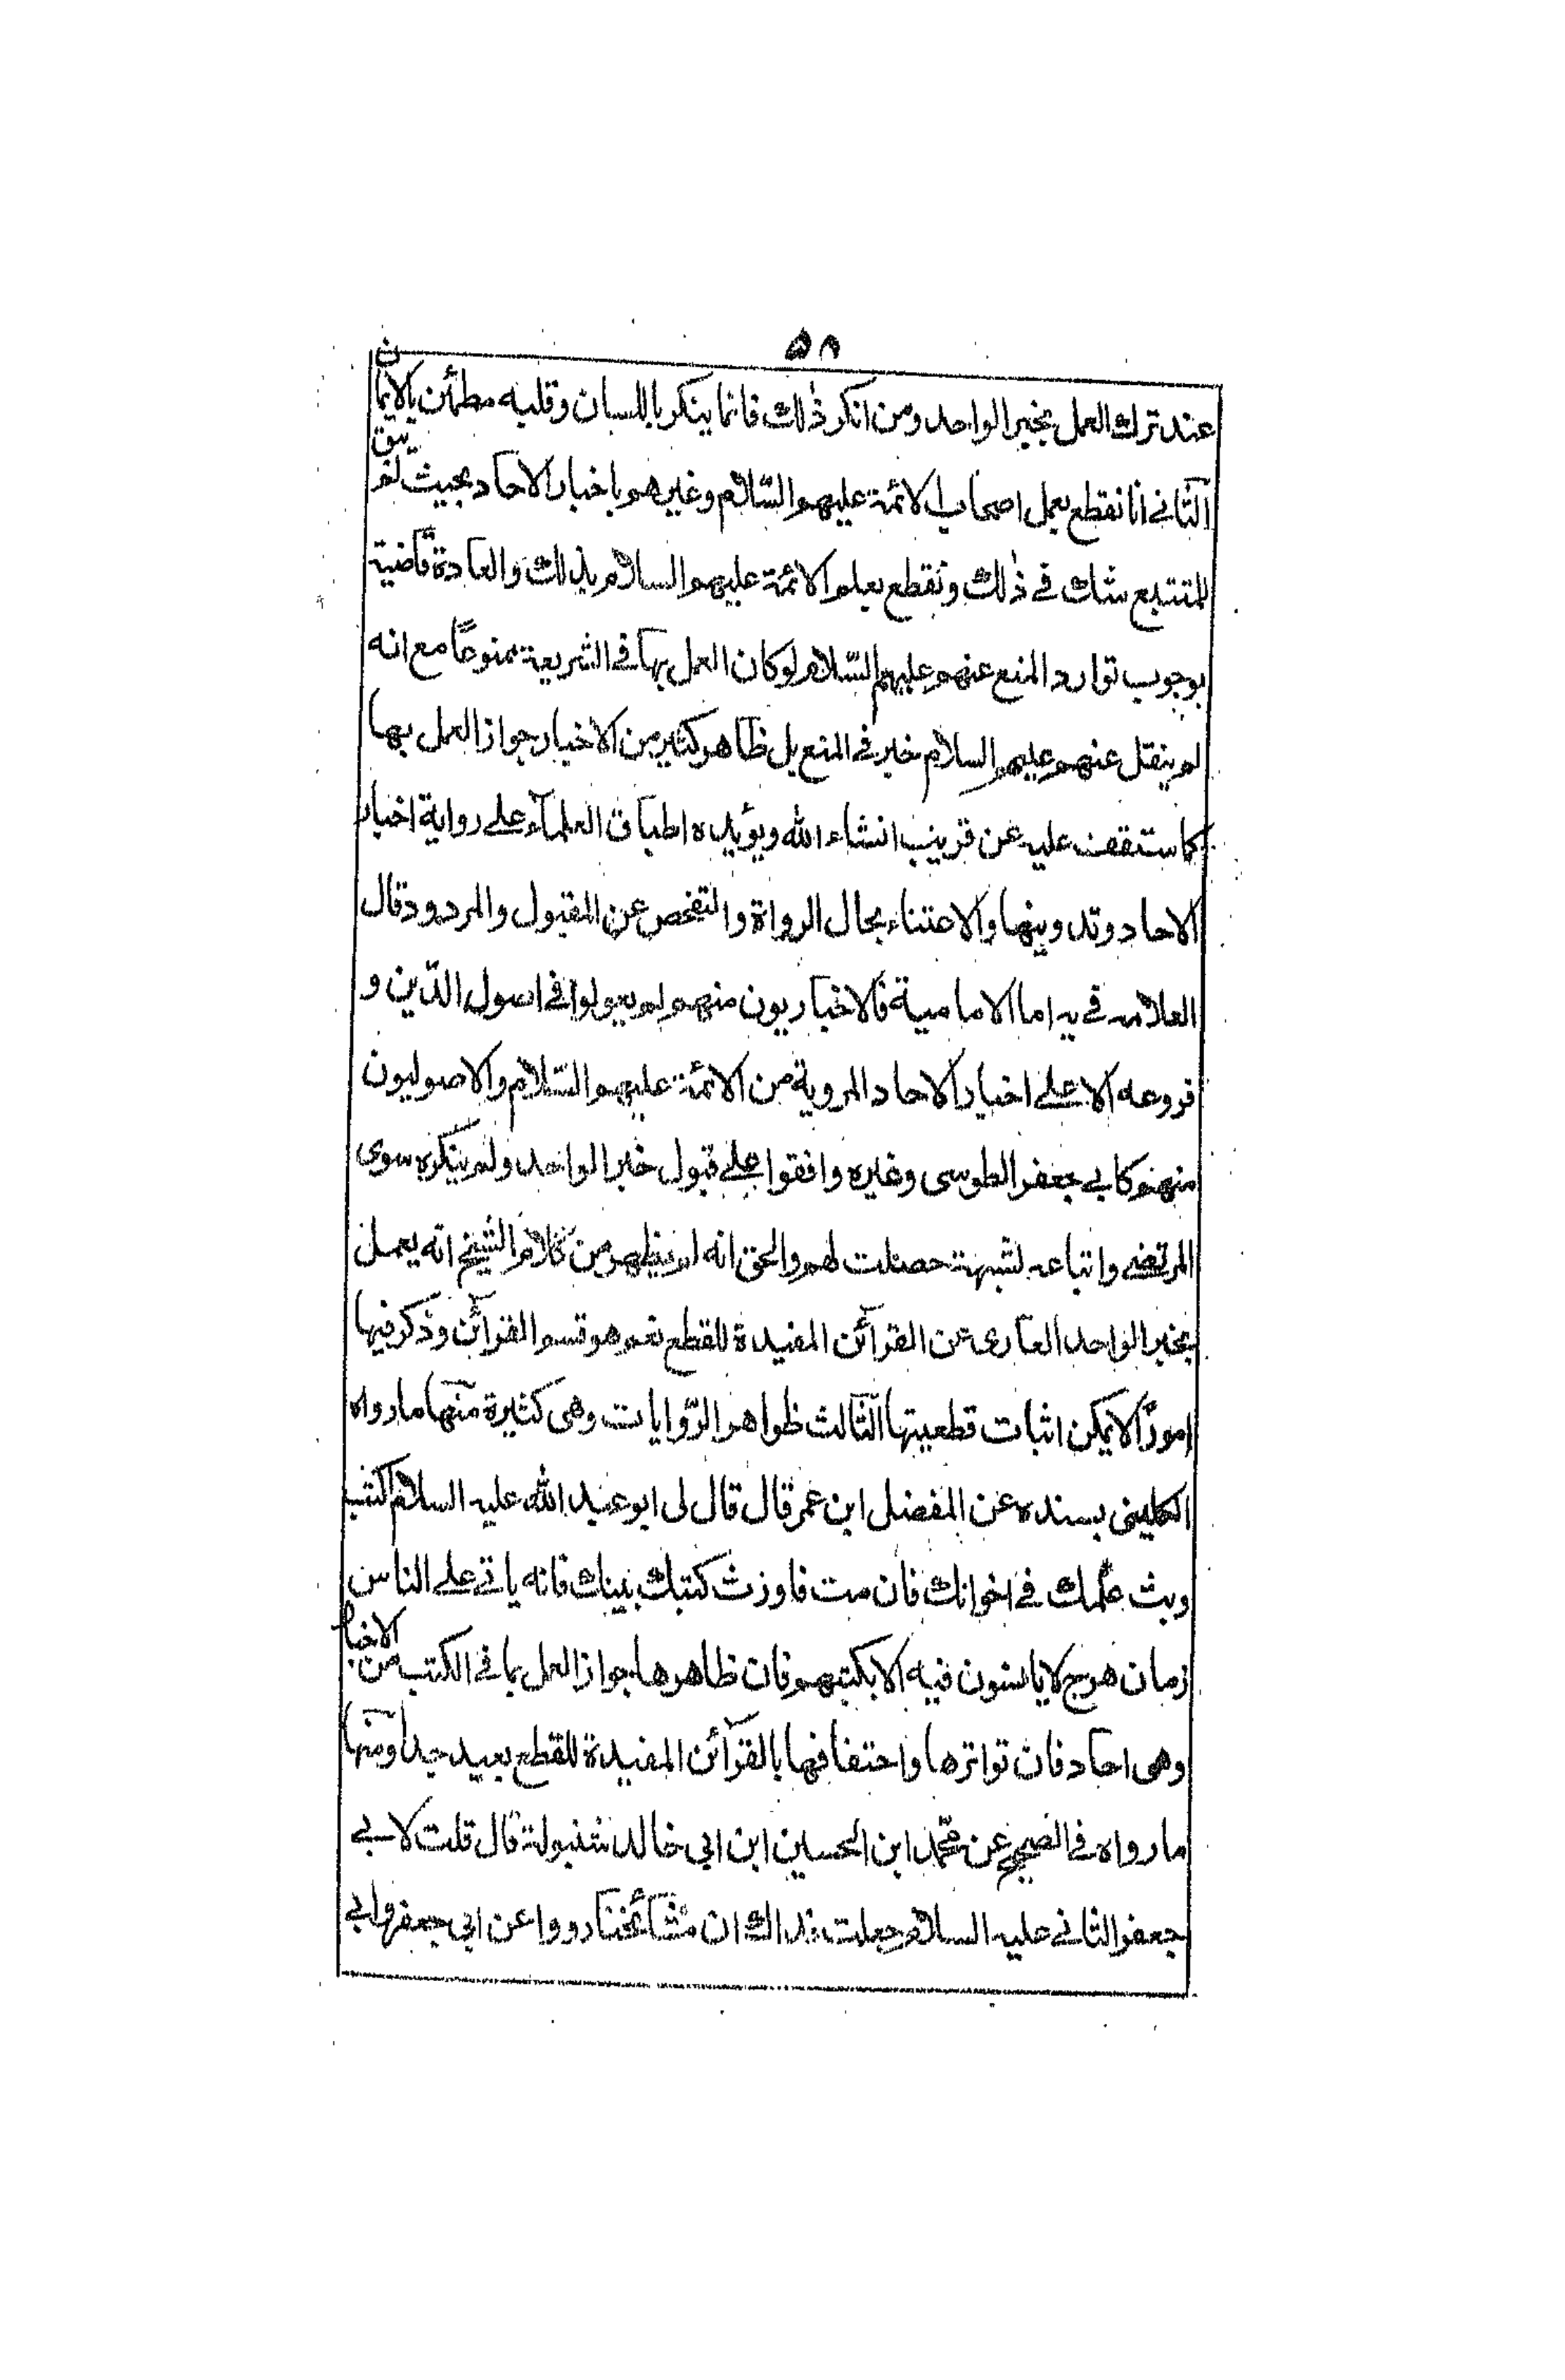 ٥٨
عند ترك العمل بخبر الواحد ومن انكر ذٰلك فانما ينكر باللسان وقلبه مطمئن بالايمان
الثانے انا نقطع بعمل اصحاب الائمة عليهم السّلام وغيرهم باخبار الاحاد بحيث لم يبق
للمتتبع شك فے ذٰلك ونقطع بعلم الائمة عليهم السلام بذلك والعادة قاضية
بوجوب توارد المنع عنهم عليهم السّلام لو كان العمل بها فے الشريعة ممنوعًا مع انه
لم ينقل عنهم عليهم السلام خبر فے المنع بل ظاهر كثير من الاخبار جواز العمل بها
كما ستقف عليه عن قريب انشاء الله ويؤيده اطباق العلمآء علے رواية اخبار
الاحاد وتدوينها والاعتناء بحال الرواة والتفحص عن المقبول والمردود قال
العلامه فے يه اما الامامية فالاخباريون منهم لم يعولوا فے اصول الدّين و
فروعه الا علے اخبار الاحاد المروية من الائمة عليهم السّلام والاصوليون
منهم كابے جعفر الطوسى وغيره وافقوا علے قبول خبر الواحد ولم ينكره سوى
المرتضے واتباعه لشبهة حصلت لهم والحق انه لم يظهر من كلام الشيخ انه يعمل
بخبر الواحد العارى عن القرآئن المفيدة للقطع نعم هو قسم القرآئن وذكر فيها
امورًا لا يمكن اثبات قطعيتها الثالث ظواهر الرّوايات وهى كثيرة منها ما رواه
الكلينى بسنده عن المفضل ابن عمر قال قال لى ابو عبد الله عليه السلام اكتب
وبث علمك فے اخوانك فان مت فاورث كتبك بنيك فانه ياتے علے الناس
زمان هرج لا يانسون فيه الا بكتبهم فان ظاهرها جواز العمل بما فے الكتب من الاخبار
وهى احاد فان تواترها واحتفافها بالقرآئن المفيدة للقطع بعيد جدا ومنها
ما رواه فے الصحيح عن محمّد ابن الحسين ابن ابى خالد شنبولة قال قلت لابے
جعفر الثانے عليه السلام جعلت فداك ان مشآئخنا رووا عن ابى جعفر وابے